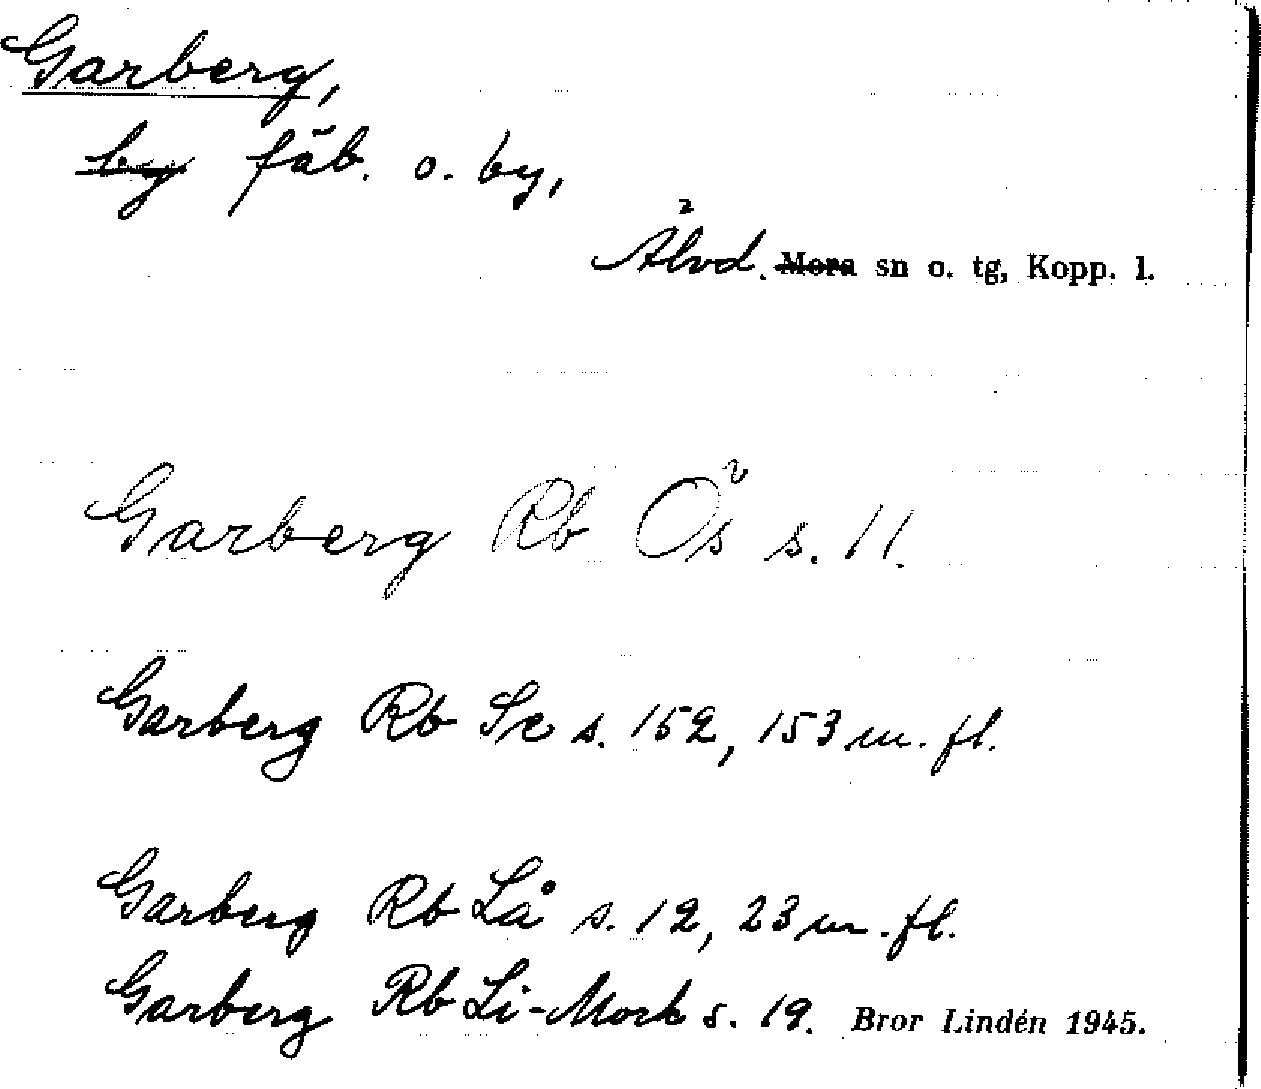 Garberg,
by fäb. o. by,
Älvd. Mora sn o. tg, Kopp. l.
Garberg Rb Ös s. 11.
Garberg Rb Se s. 152, 153 m. fl.
Garberg Rb Lå s. 12, 23 m. fl.
Garberg Rb Li-Mork s. 19. Bror Lindén 1945.